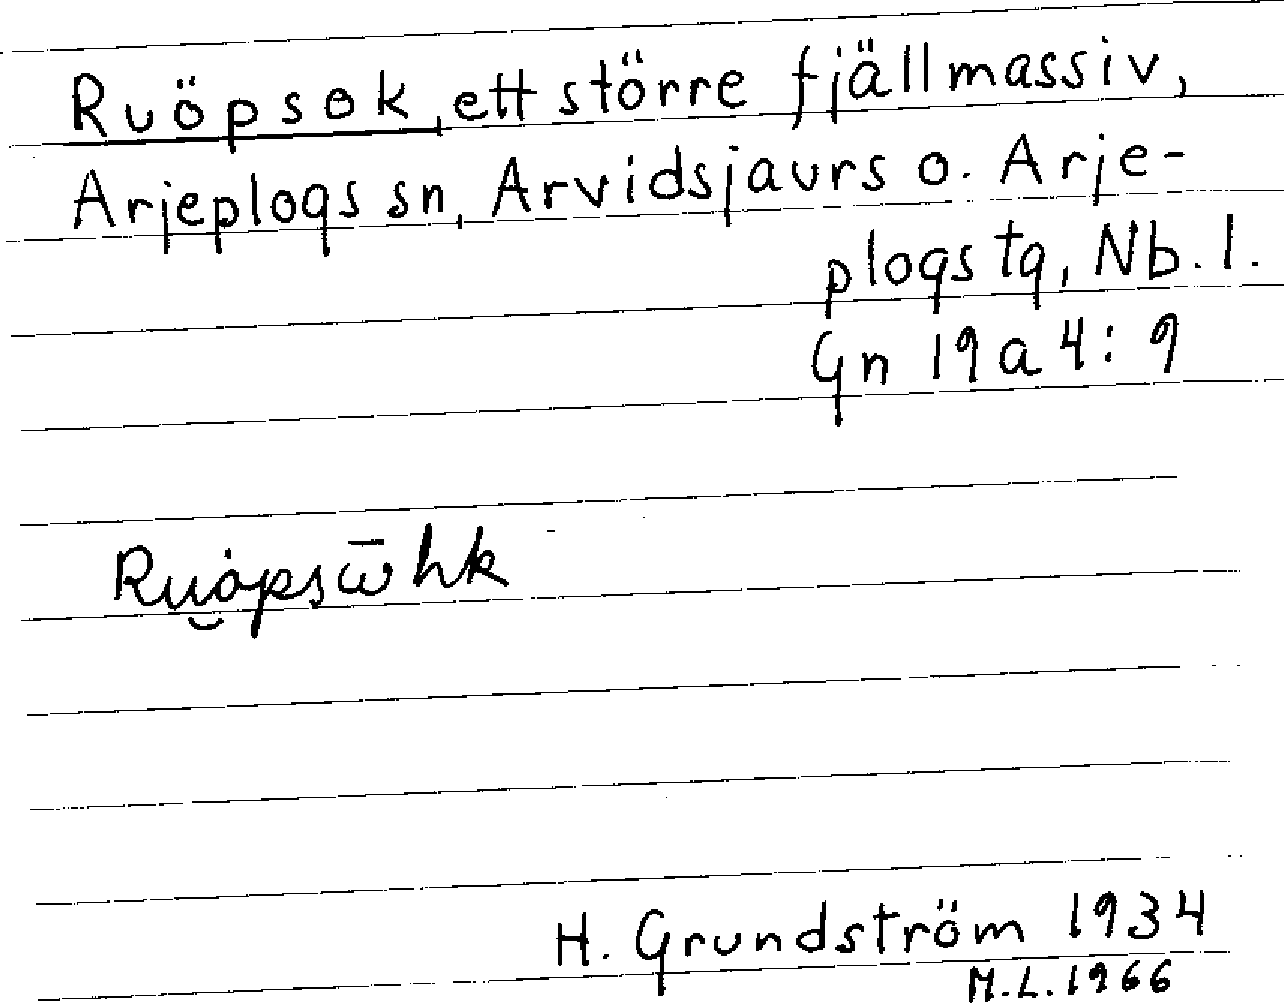 Ruöpsok, ett större fjällmassiv,
Arjeplogs sn, Arvidsjaurs o. Arje-
plogs tg, Nb. l.
Gn 19 a 4: 9
Ru̮ȯpsω̄hk
H. Grundström 1934
M.L. 1966